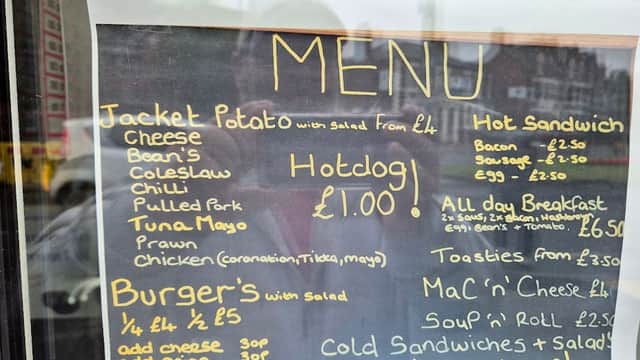 MENU
Jacket Potato with salad From £4
Cheese
Bean's
Coleslaw
Chilli
Pulled Pork
Tuna Mayo
Prawn
Chicken (coronation, Tikka, mayo)
Burger's with Salad
1/4 £4 1/2 £5
add cheese 30p
30p
Hotdog!
£1.00
Hot Sandwich
Bacon - £2.50
Sausage - £2.50
Egg - £2.50
All day Breakfast
2x Saus, 2x Bacon,
Egg, Bean's + Tomato. £6.50
Toasties From £3.50
Mac 'n' Cheese £4
Soup 'n' Roll £2.50
Cold Sandwiches + Salads